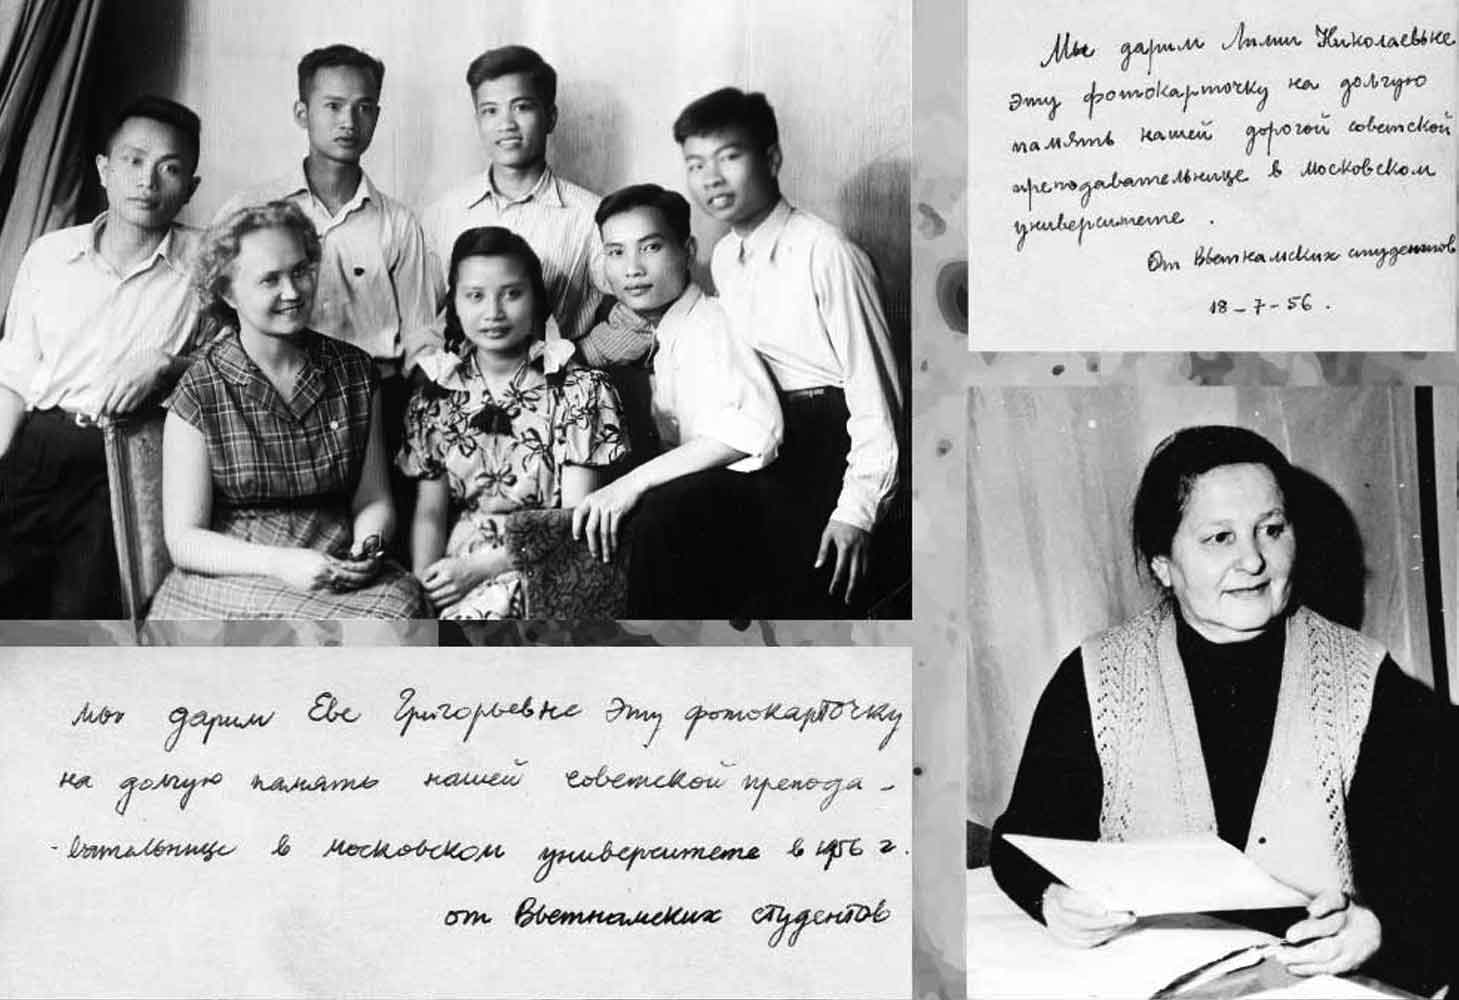 Мы дарим Лилии Николаевне
эту фотокарточку на долгую
память нашей дорогой советской
преподавательнице в московском
университете .
От Вьетнамских студентов
18 – 7 – 56 .
Мы дарим Еве Григорьевне эту фотокарточку
на долгую память нашей советской препода -
- вательнице в московском университете в 1956 г.
от Вьетнамских студентов